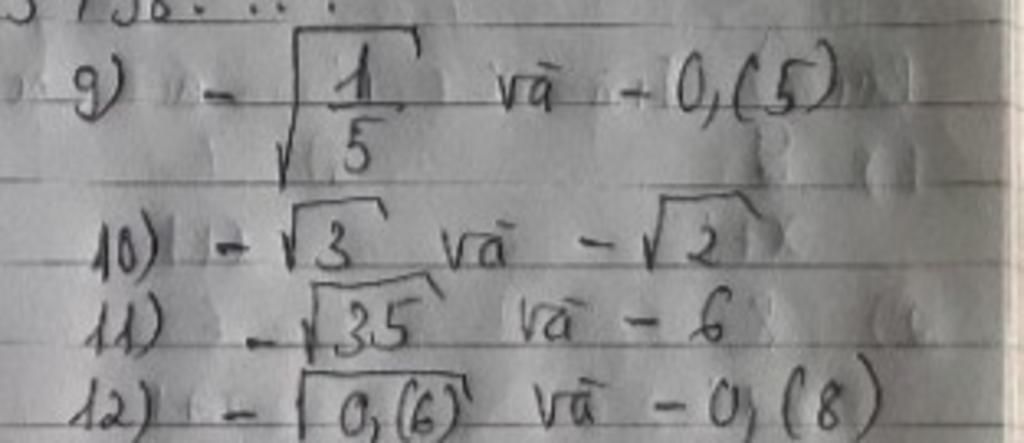 9) - √(1/5) và - 0,(5)
10) - √3 và - √2
11) - √35 và - 6
12) - √0,(6) và - 0,(8)